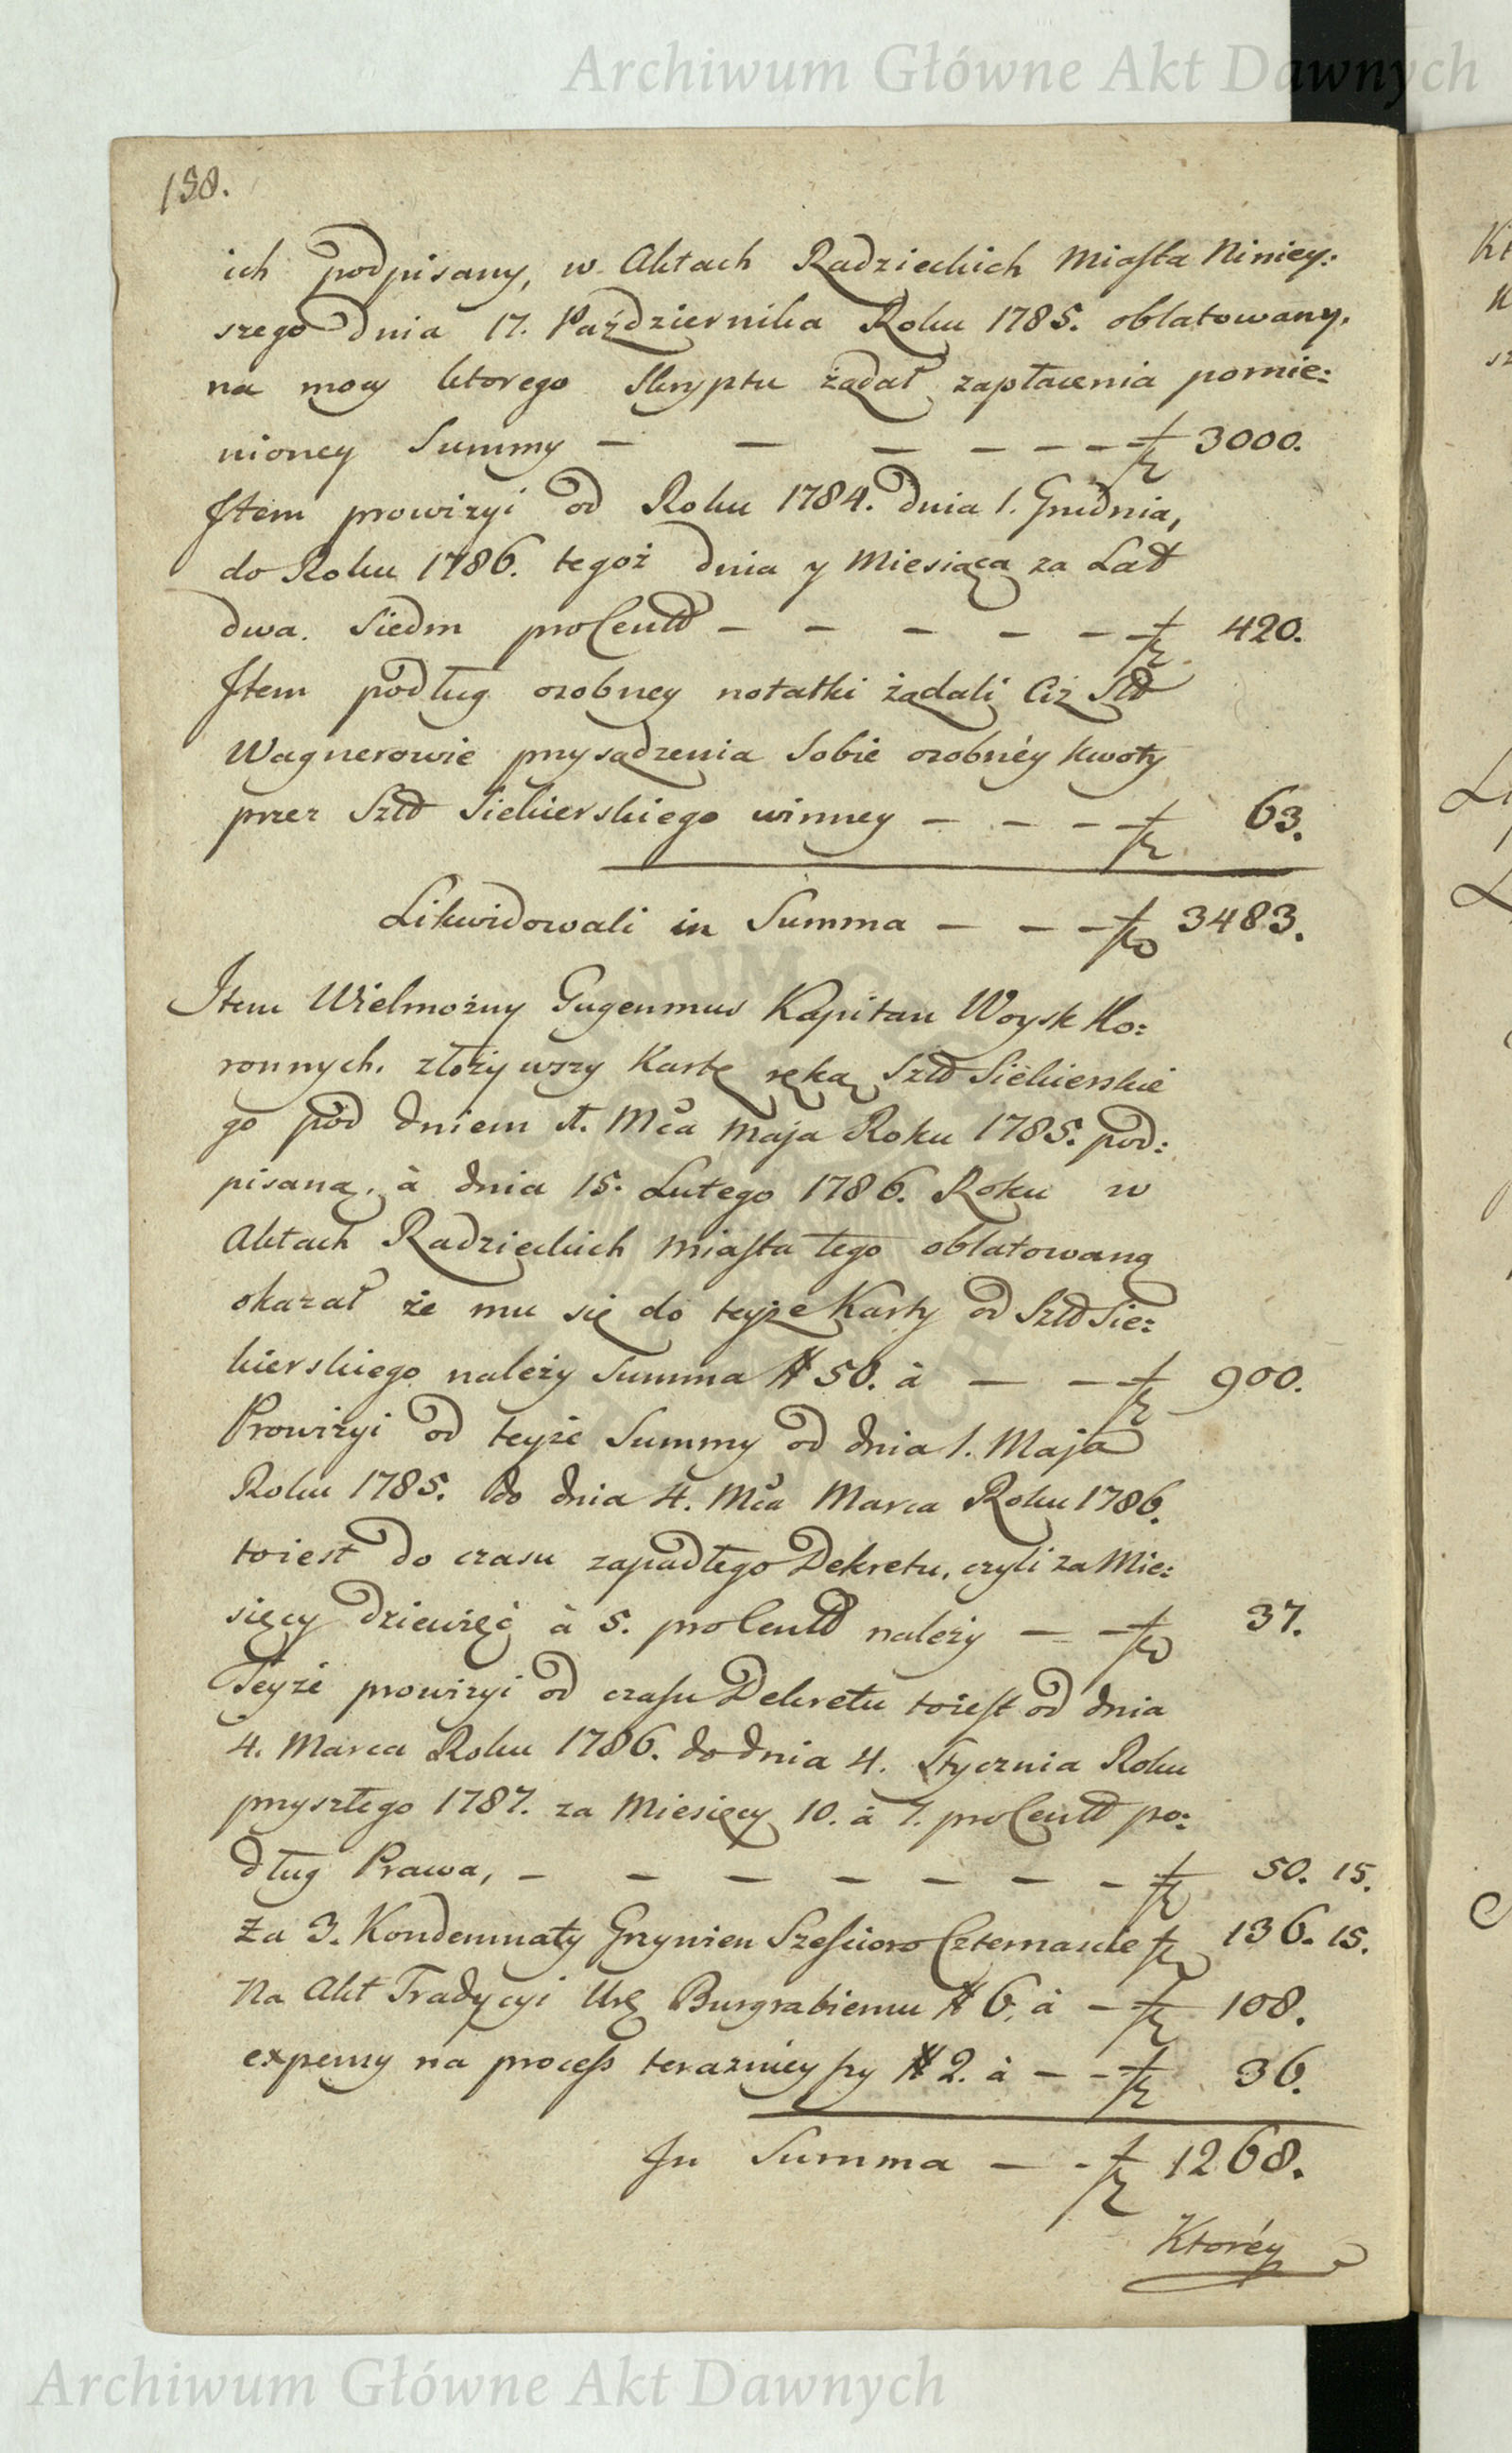 Archiwum Główne Akt Dawnych
198.
ich podpisany, w Aktach Radzieckich Miasta Niniey:
szego dnia 17. Października Roku 1785. oblatowany,
na mocy ktorego Skryptu żądał zapłacenia pomie:
nioney Summy — — — — — — fl 3000.
Item prowizyi od Roku 1784. dnia 1. Grudnia,
do Roku 1786. tegoż dnia y Miesiąca za Lat
dwa. Siedm proCentt — — — — — fl 420.
Item podług osobney notatki żądali Ciż Słł
Wagnerowie przysądzenia Sobie osobnéy kwoty
przez Szłł Siekierskiego winney — — — fl 63.
Likwidowali in Summa — — — fl 3483.
Item Wielmożny Gugenmus Kapitan Woysk Ko:
ronnych. złożywszy Kartę ręką Szłł Siekierskie
go pod dniem 1. Mca Maja Roku 1785. pod:
pisaną, à dnia 15. Lutego 1786. Roku w
Aktach Radzieckich miasta tego oblatowaną
okazał że mu się do teyże Karty od Szłł Sie:
kierskiego należy Summa # 50. à — — fl 900.
Prowizyi od teyże Summy od dnia 1. Maja
Roku 1785. do dnia 4. Mca Marca Roku 1786.
toiest do czasu zapadłego Dekretu, czyli za Mie:
sięcy dziewięć à 5. proCentt należy — — fl 37.
Teyże prowizyi od czasu Dekretu toiest od dnia
4. Marca Roku 1786. do dnia 4. Stycznia Roku
przyszłego 1787. za Miesięcy 10. à 7. proCentt po:
dług Prawa, — — — — — — — — fl 50. 15.
Za 3. Kondemnaty Grzywien Sześcioro Czternaście fl 136. 15.
Na Akt Tradycyi Urę Burgrabiemu # 6. à — fl 108.
expensy na process terazniey szy # 2. à — — fl 36.
In Summa — — fl 1268.
Któréy
Archiwum Główne Akt Dawnych